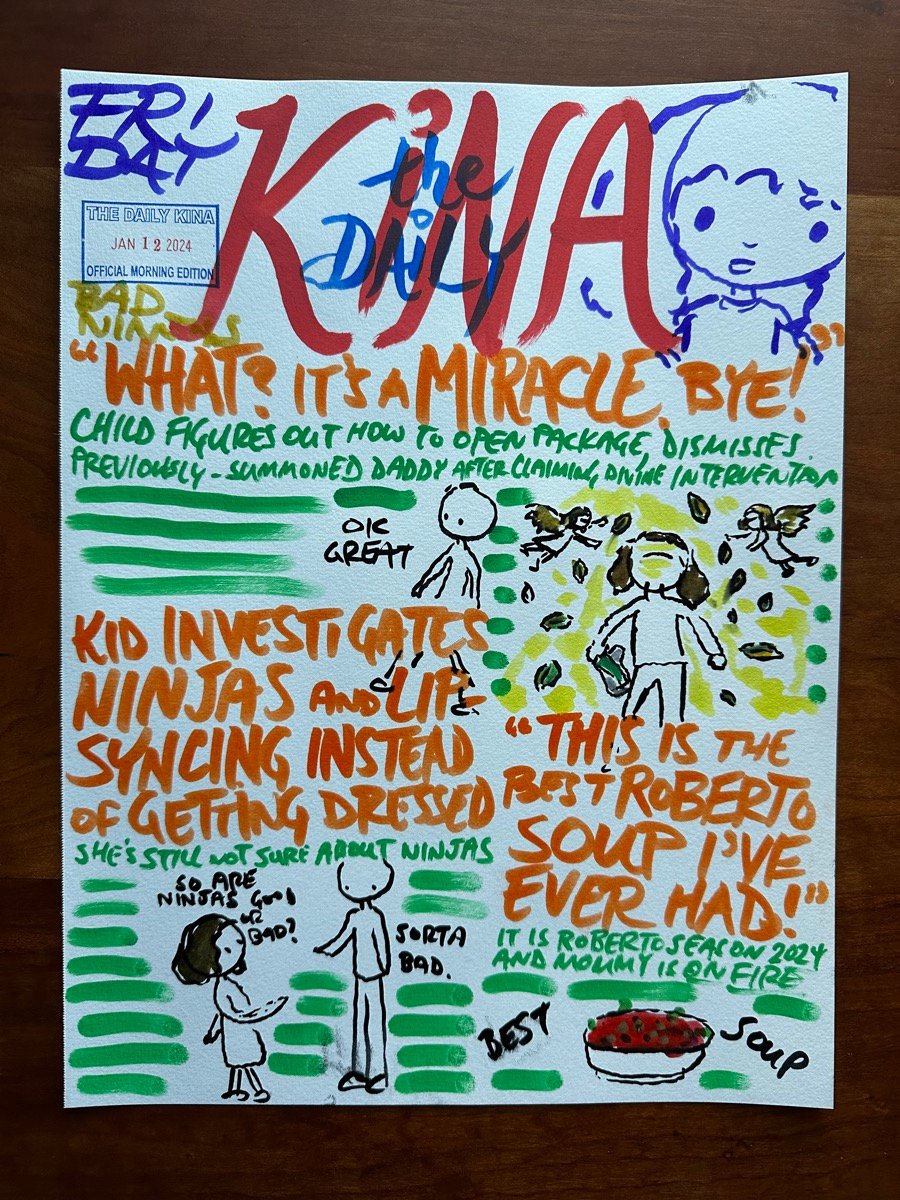 FRI
DAY
KiNA
the
DAILY
THE DAILY KINA
JAN 12 2024
OFFICIAL MORNING EDITION
BAD
NINJAS
"WHAT? IT'S A MIRACLE. BYE!"
CHILD FIGURES OUT HOW TO OPEN PACKAGE, DISMISSES
PREVIOUSLY-SUMMONED DADDY AFTER CLAIMING DIVINE INTERVENTION
OK
GREAT
KID INVESTIGATES
NINJAS AND LIP-
SYNCING INSTEAD
OF GETTING DRESSED
SHE'S STILL NOT SURE ABOUT NINJAS
SO ARE
NINJAS GOOD
OR
BAD?
SORTA
BAD.
"THIS IS THE
BEST ROBERTO
SOUP I'VE
EVER HAD!"
IT IS ROBERTO SEASON 2024
AND MOMMY IS ON FIRE
BEST
SOUP